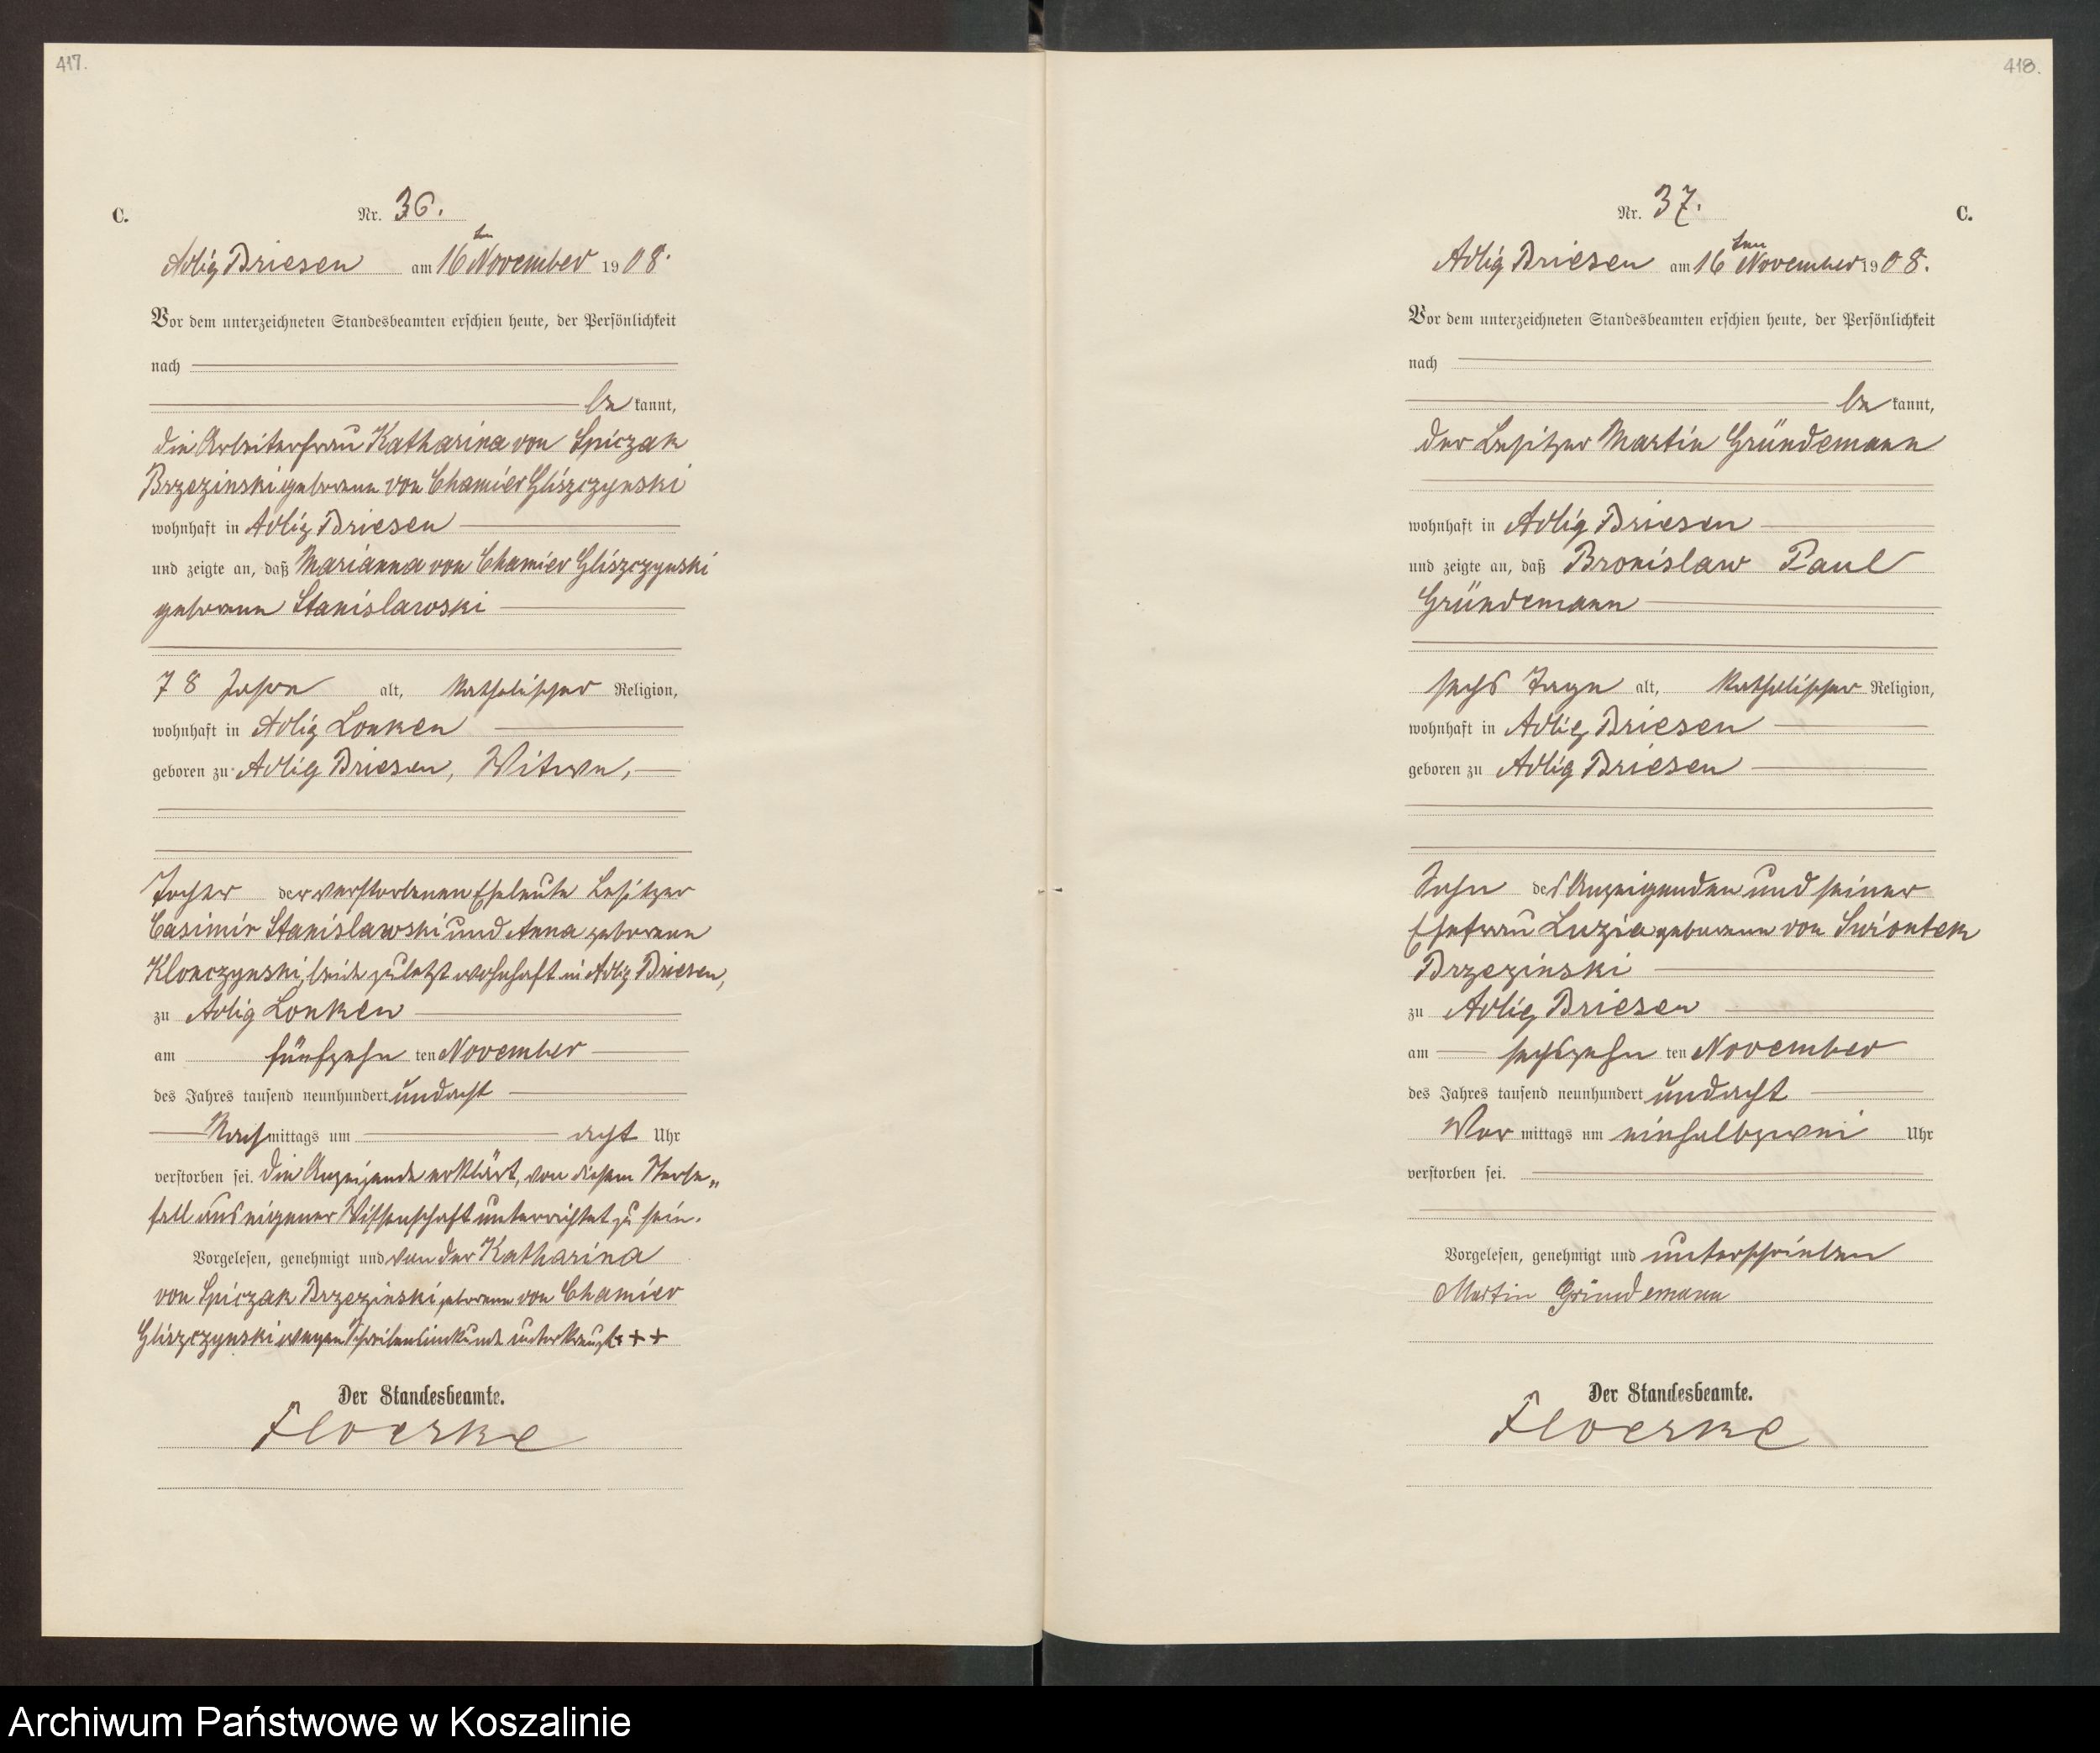 417.
C.
Nr. 36.
Adlig Briesen am 16ten November 1908.
Vor dem unterzeichneten Standesbeamten erschien heute, der Persönlichkeit
nach
be kannt,
die Arbeiterfrau Katharina von Spiczak
Brzezinski geborene von Chamier Gliszczynski
wohnhaft in Adlig Briesen
und zeigte an, daß Marianna von Chamier Gliszczynski
geborene Stanislawski
78 Jahre alt, katholischer Religion,
wohnhaft in Adlig Lonken
geboren zu Adlig Briesen, Witwe,
Tochter der verstorbenen Eheleute Besitzer
Casimir Stanislawski und Anna geborene
Klonczynski, beide zuletzt wohnhaft in Adlig Briesen,
zu Adlig Lonken
am fünfzehn ten November
des Jahres tausend neunhundert und acht
Nachmittags um acht Uhr
verstorben sei. Die Anzeigende erklärt, von diesem Sterbe„
fall aus eigener Wissenschaft unterrichtet zu sein.
Vorgelesen, genehmigt und von der Katharina
von Spiczak Brzezinski geborene von Chamier
Gliszczynski wegen Schreibensunkunde unterkreuzt +++
Der Standesbeamte.
Floerke
418.
Nr. 37.
C.
Adlig Briesen am 16ten November 1908.
Vor dem unterzeichneten Standesbeamten erschien heute, der Persönlichkeit
nach
be kannt,
der Besitzer Martin Gründemann
wohnhaft in Adlig Briesen
und zeigte an, daß Bronislaw Paul
Gründemann
sechs Tage alt, katholischer Religion,
wohnhaft in Adlig Briesen
geboren zu Adlig Briesen
Sohn des Anzeigenden und seiner
Ehefrau Luzia geborene von Swiontek
Brzezinski
zu Adlig Briesen
am sechszehn ten November
des Jahres tausend neunhundert und acht
Vor mittags um einhalbzwei Uhr
verstorben sei.
Vorgelesen, genehmigt und unterschrieben
Martin Gründemann
Der Standesbeamte.
Floerke
Archiwum Państwowe w Koszalinie